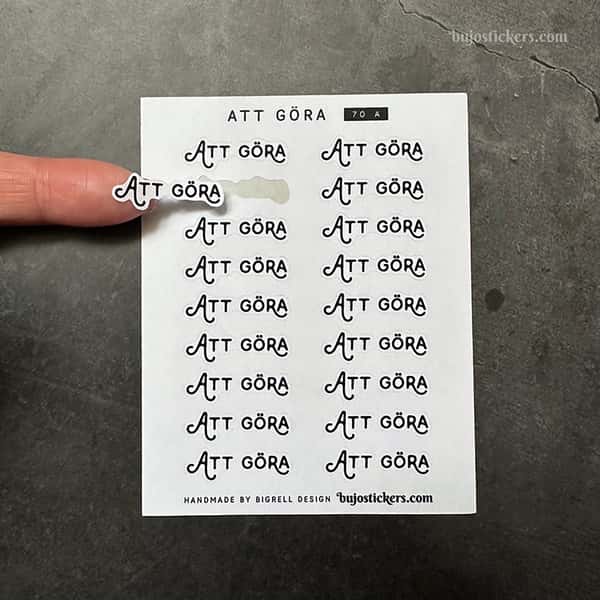 bujostickers.com
ATT GÖRA 70 A
ATT GÖRA ATT GÖRA
ATT GÖRA ATT GÖRA
ATT GÖRA ATT GÖRA
ATT GÖRA ATT GÖRA
ATT GÖRA ATT GÖRA
ATT GÖRA ATT GÖRA
ATT GÖRA ATT GÖRA
ATT GÖRA ATT GÖRA
ATT GÖRA ATT GÖRA
HANDMADE BY BIGRELL DESIGN bujostickers.com